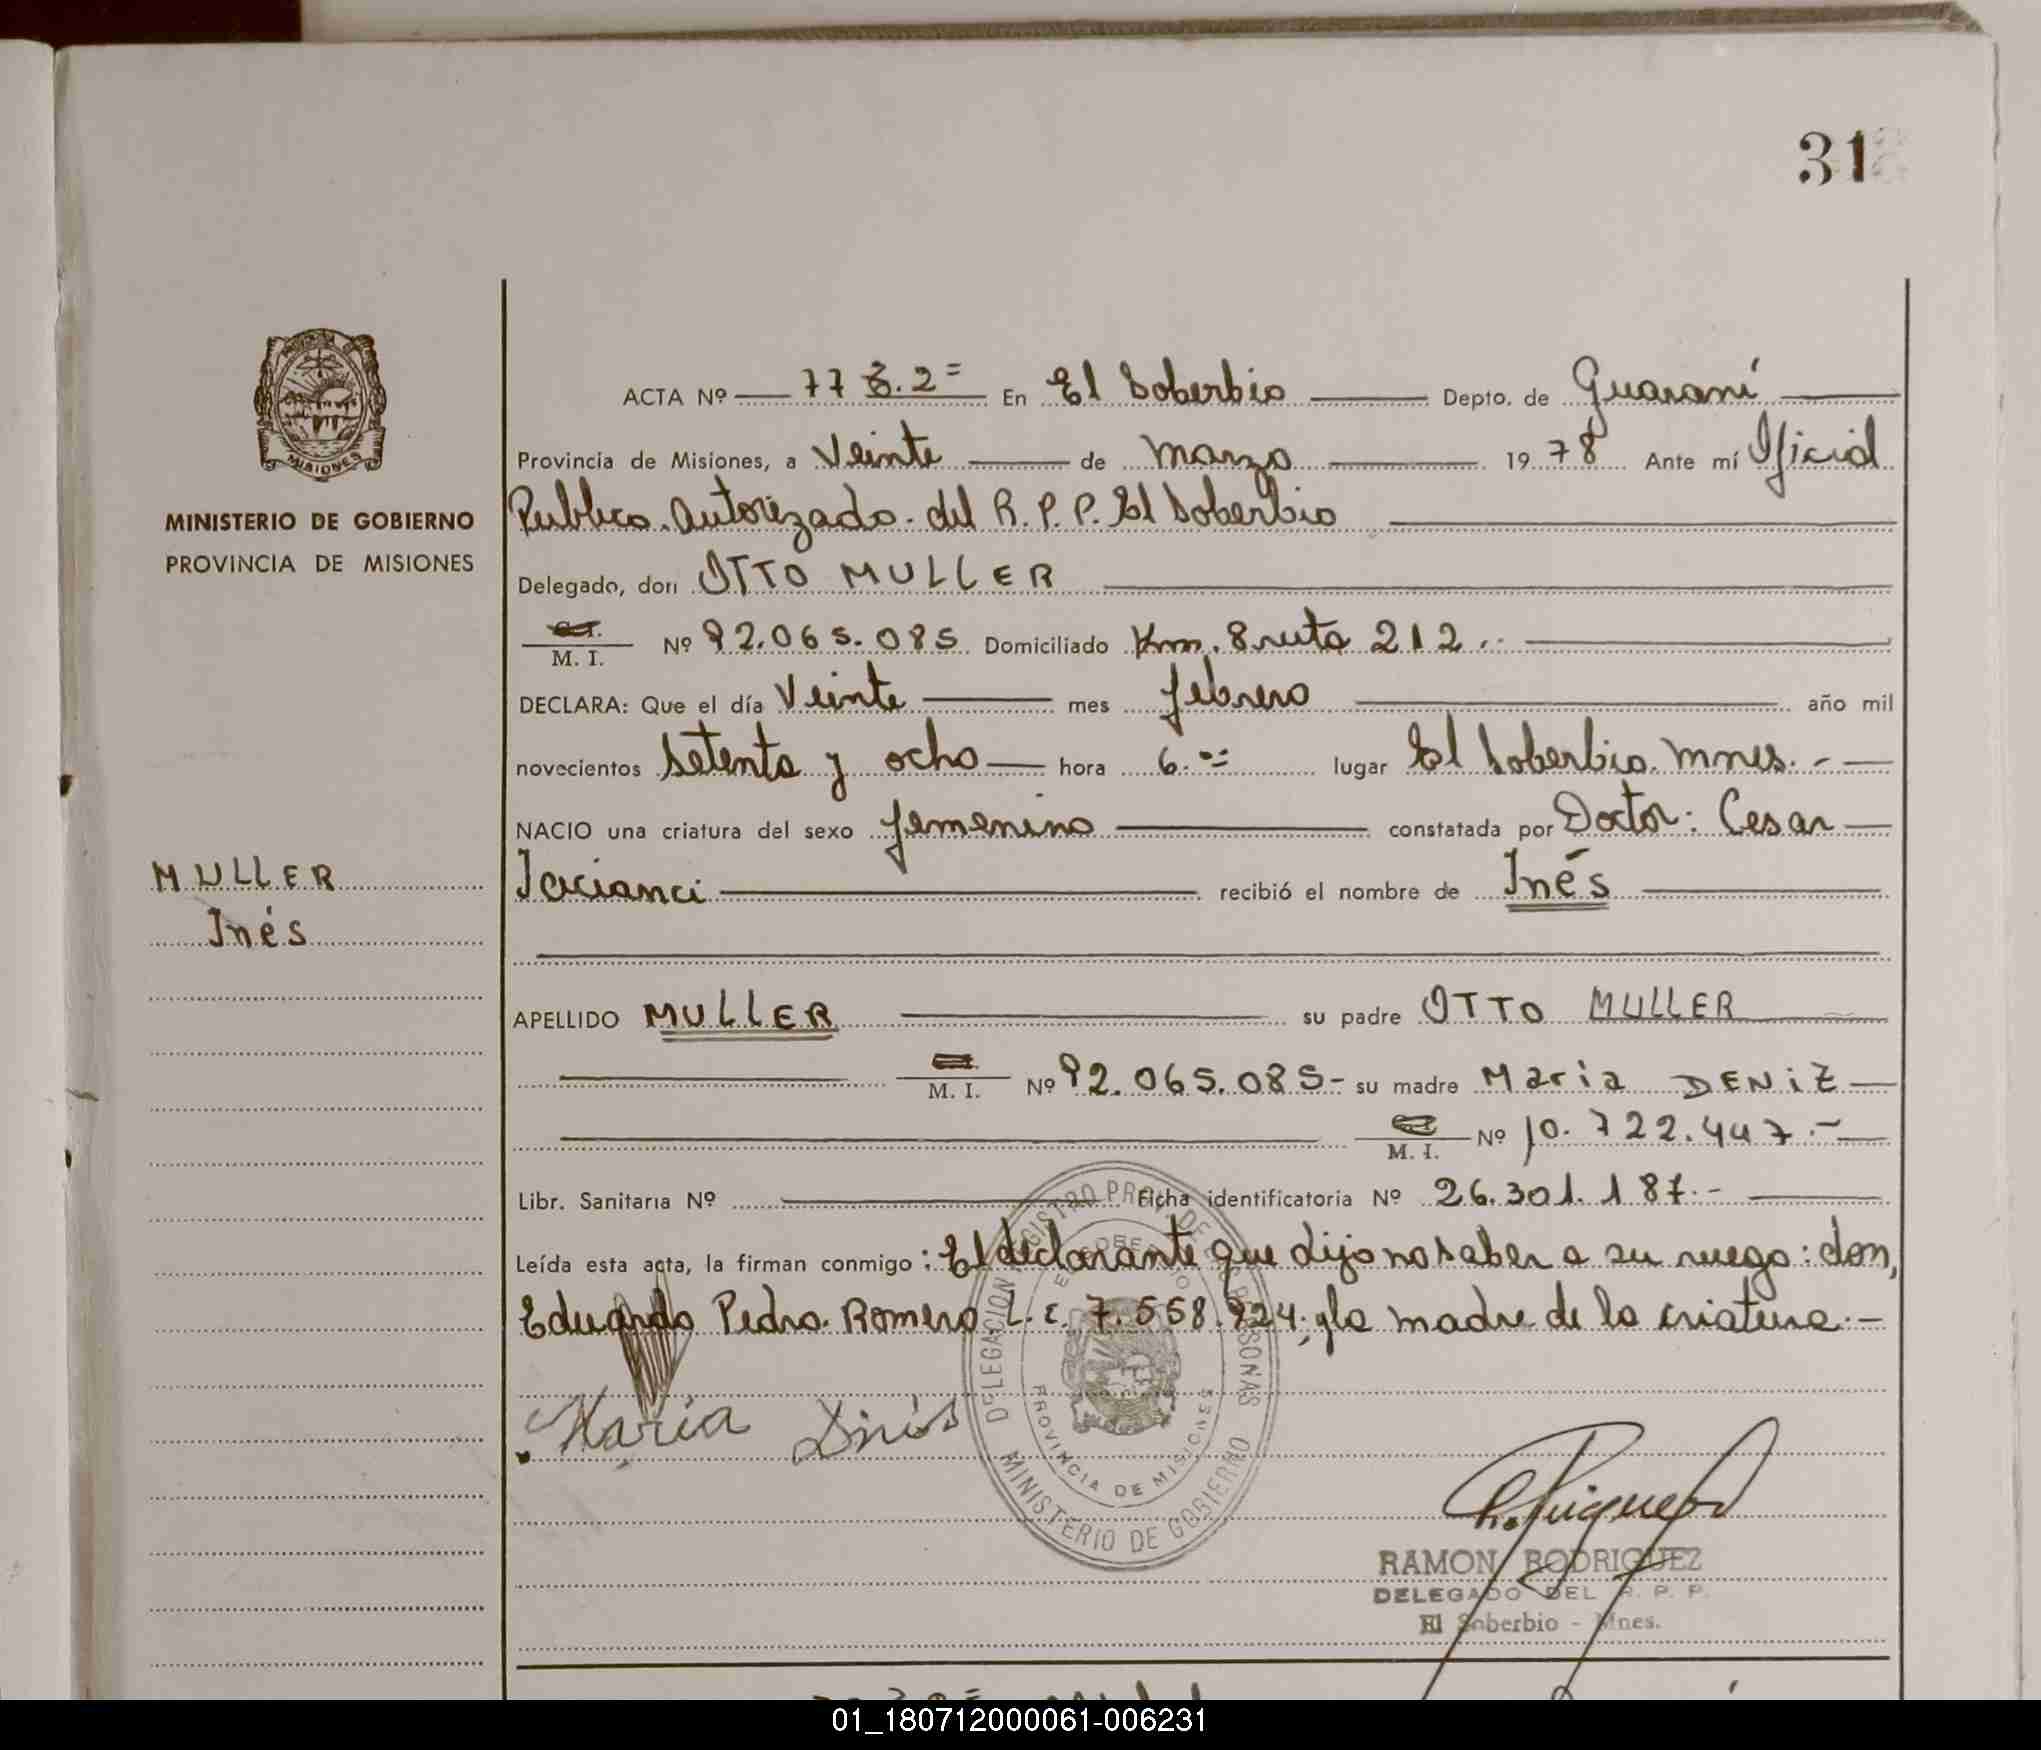 31
MISIONES
MINISTERIO DE GOBIERNO
PROVINCIA DE MISIONES
MULLER
Inés
ACTA Nº 77 3.2= En El Soberbio Depto. de Guaraní
Provincia de Misiones, a Veinte de marzo 1978 Ante mí Oficial
Publico Autorizado. del R. P. P. El Soberbio
Delegado, don OTTO MULLER
M. I. Nº 92.065.085 Domiciliado Km. 8 ruta 212.-
DECLARA: Que el día Veinte mes febrero año mil
novecientos setenta y ocho hora 6.= lugar El Soberbio. Mnes.-
NACIO una criatura del sexo femenino constatada por Doctor: Cesar
recibió el nombre de Inés
APELLIDO MULLER su padre OTTO MULLER
M. I. Nº 92.065.085- su madre Maria DENiZ
M. I. Nº 10.722.447.-
Libr. Sanitaria Nº Ficha identificatoria Nº 26.301.187.-
Leída esta acta, la firman conmigo: El declarante que dijo no saber a su ruego: don,
Eduardo Pedro. Romero. L.E. 7.558.924; y la madre de la criatura.-
Maria Dinis
DELEGACION REGISTRO PROV. DE LAS PERSONAS
MINISTERIO DE GOBIERNO
EL SOBERBIO
PROVINCIA DE MISIONES
RAMON RODRIGUEZ
DELEGADO DEL R. P. P.
El Soberbio - Mnes.
01_180712000061-006231